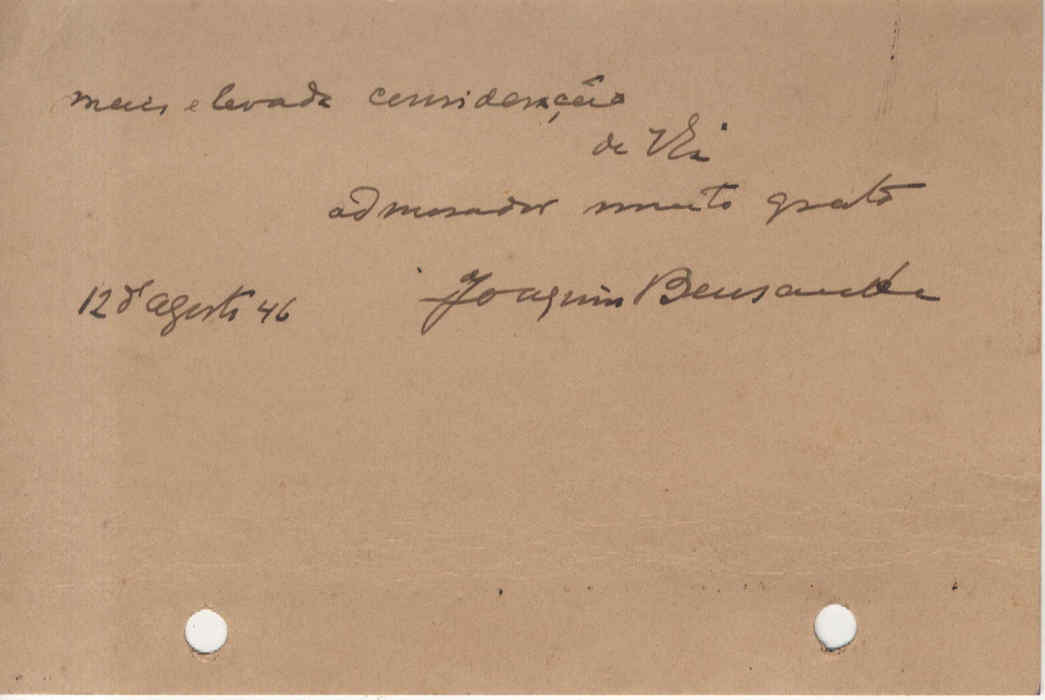 mais elevada consideração
de V. Ex.
admirador muito grato
12 d'agosto 46
Joaquim Bensaude